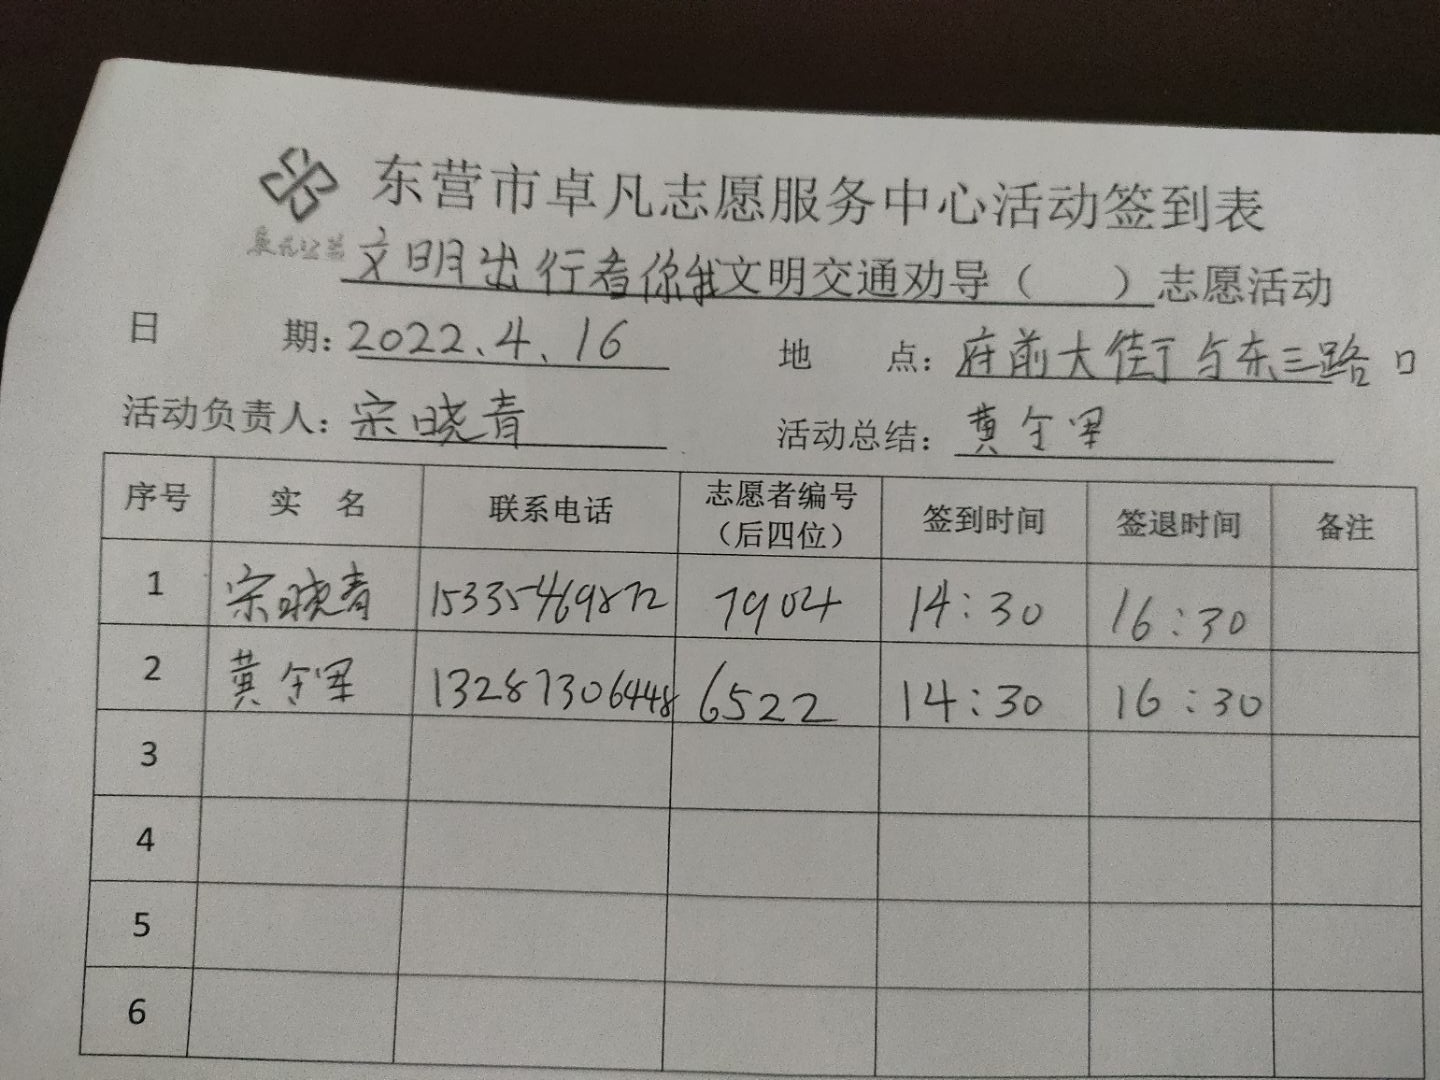 东营市卓凡志愿服务中心活动签到表
文明出行看你我文明交通劝导（ ）志愿活动
日 期：2022、4、16 地 点：府前大街与东三路口
活动负责人：宗晓青 活动总结：黄金军
序号 实 名 联系电话 志愿者编号（后四位） 签到时间 签退时间 备注
1 宗晓青 15335469872 7904 14:30 16:30
2 黄金军 13287306448 6522 14:30 16:30
3
4
5
6